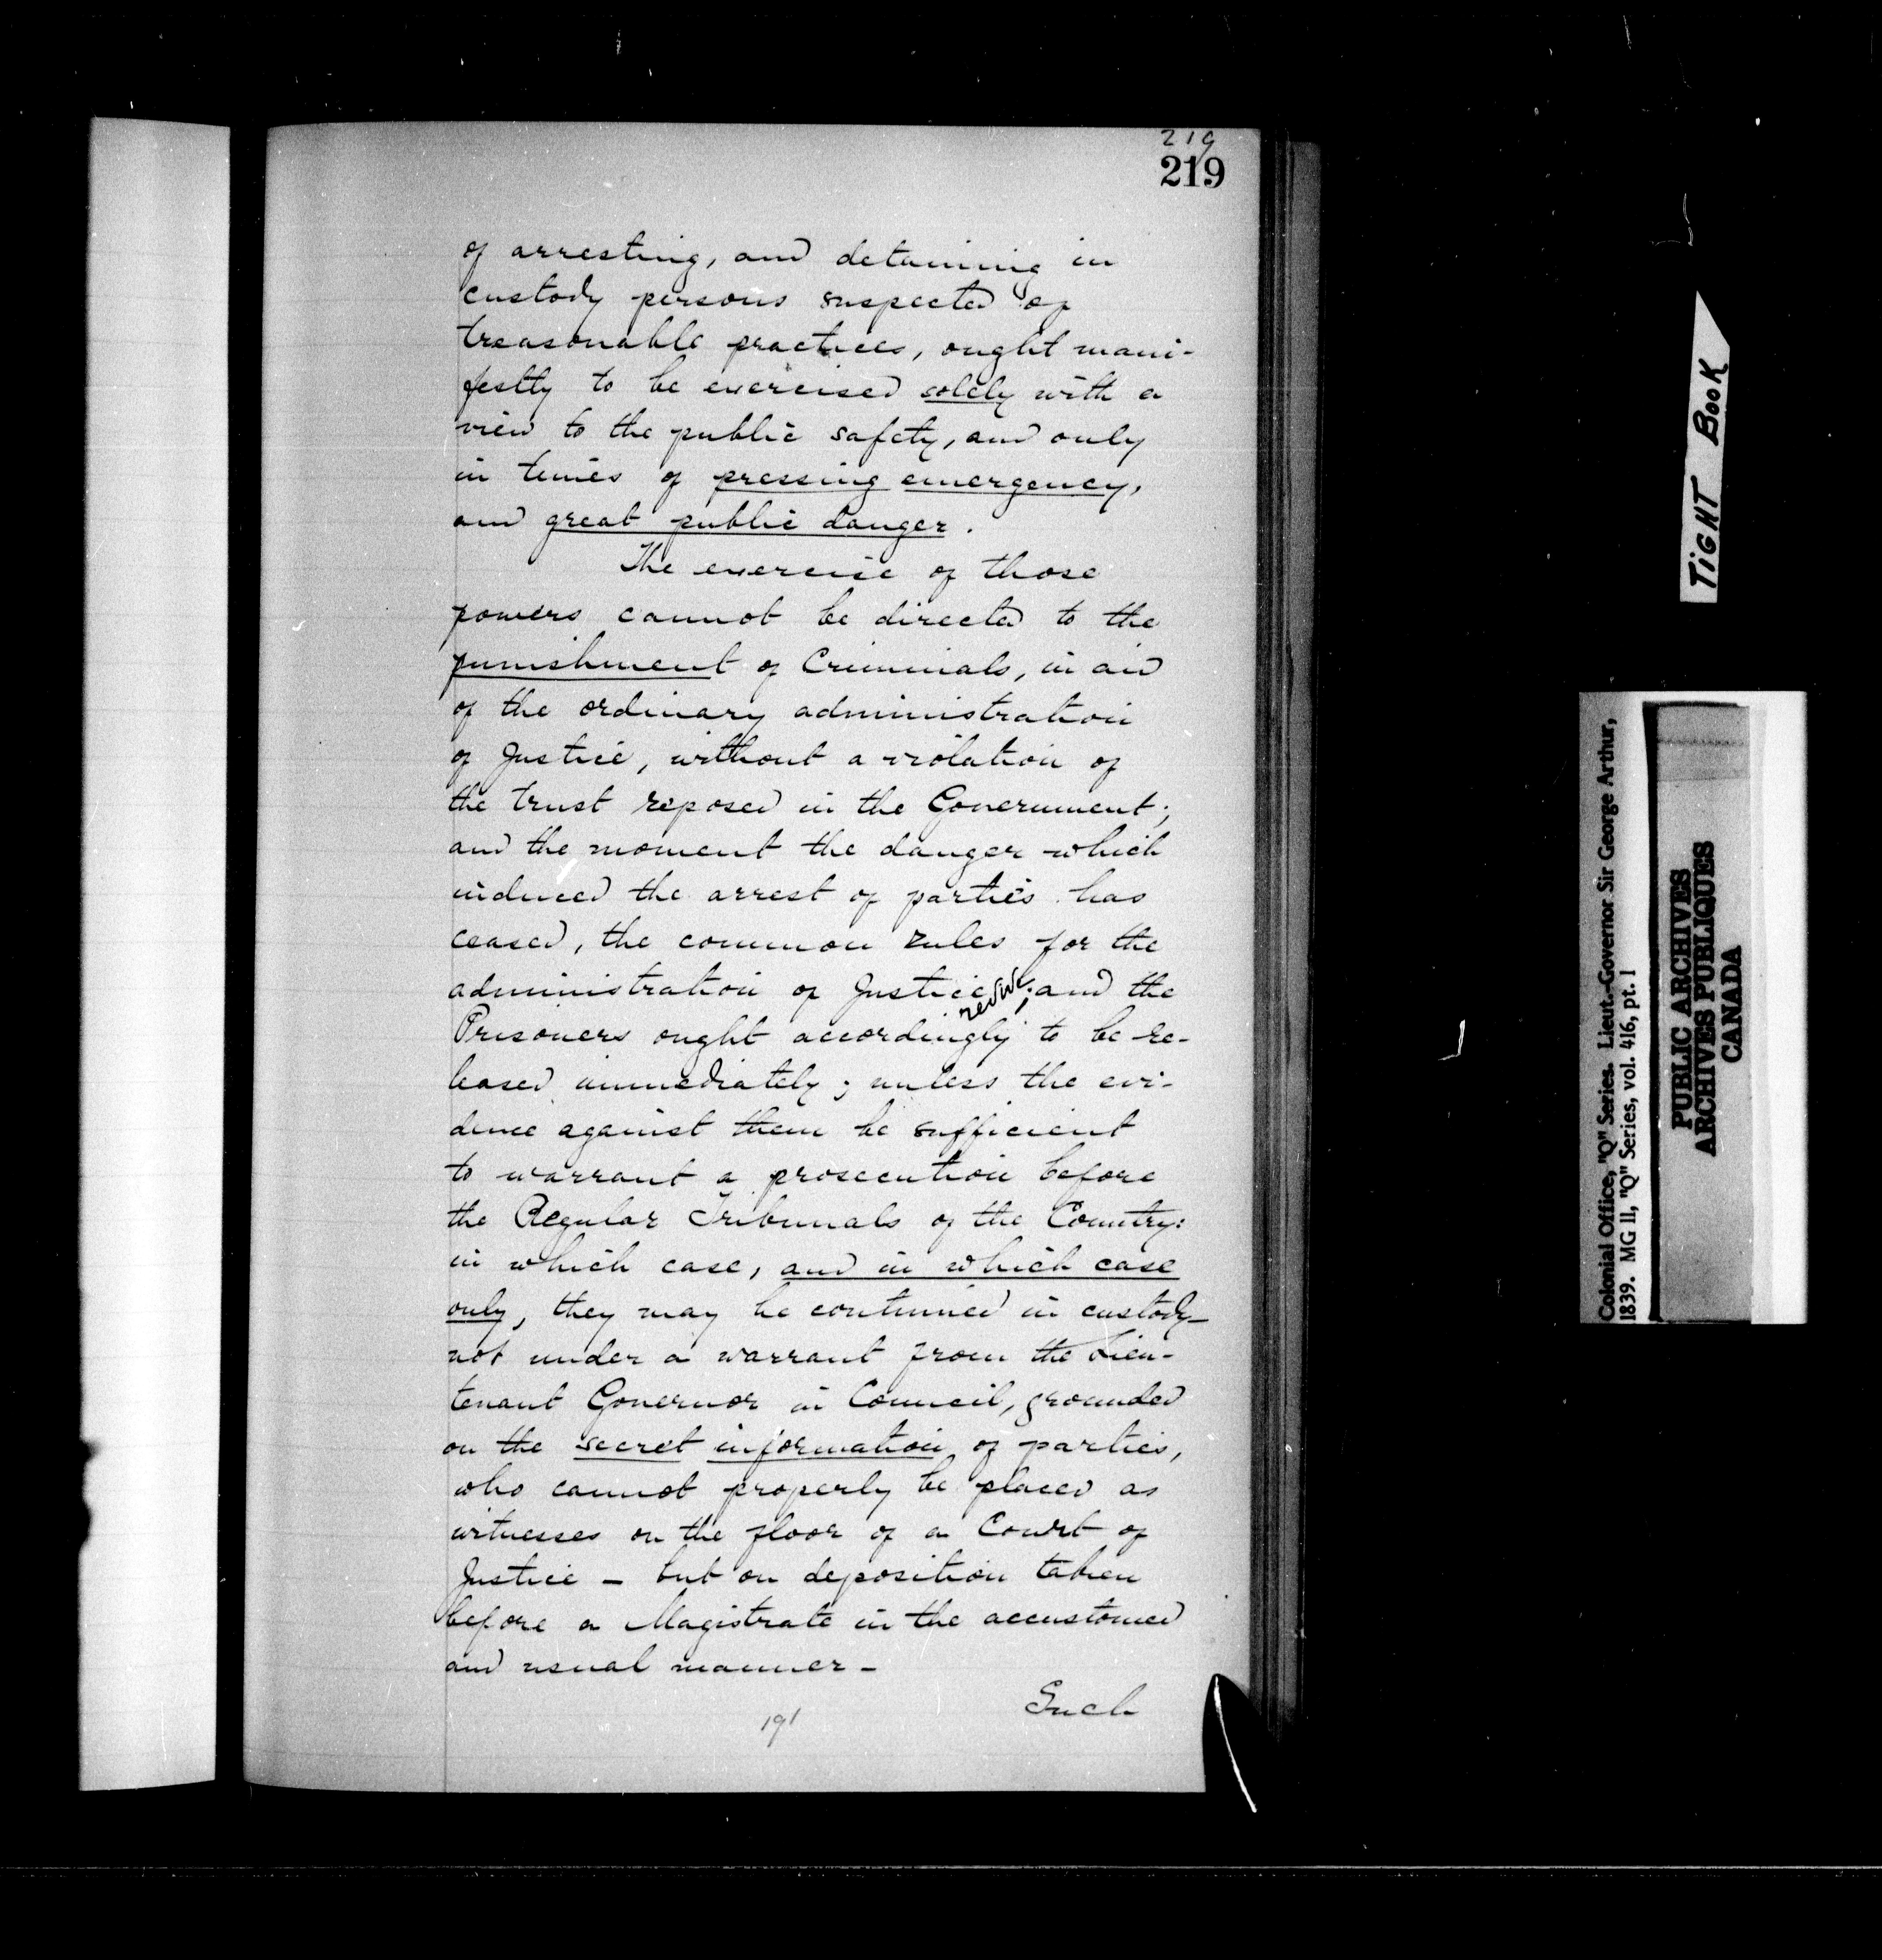 219
219
of arresting, and detaining in
custody persons suspected of
treasonable practices, ought mani-
festly to be exercised solely with a
view to the public safety, and only
in times of pressing emergency,
and great public danger.
The exercise of those
powers cannot be directed to the
punishment of Criminals, in aid
of the ordinary administration
of Justice, without a violation of
the trust reposed in the Government;
and the moment the danger which
induced the arrest of parties has
ceased, the common rules for the
administration of Justice revive; and the
Prisoners ought accordingly to be re-
leased immediately; unless the evi-
dence against them be sufficient
to warrant a prosecution before
the Regular Tribunals of the Country:
in which case, and in which case
only, they may be continued in custody—
not under a warrant from the Lieu-
tenant Governor in Council, grounded
on the secret information of parties,
who cannot properly be placed as
witnesses on the floor of a Court of
Justice — but on deposition taken
before a Magistrate in the accustomed
and usual manner —
Such
191
TIGHT BOOK
Colonial Office, "Q" Series. Lieut.-Governor Sir George Arthur,
1839. MG 11, "Q" Series, vol. 416, pt. 1
PUBLIC ARCHIVES
ARCHIVES PUBLIQUES
CANADA